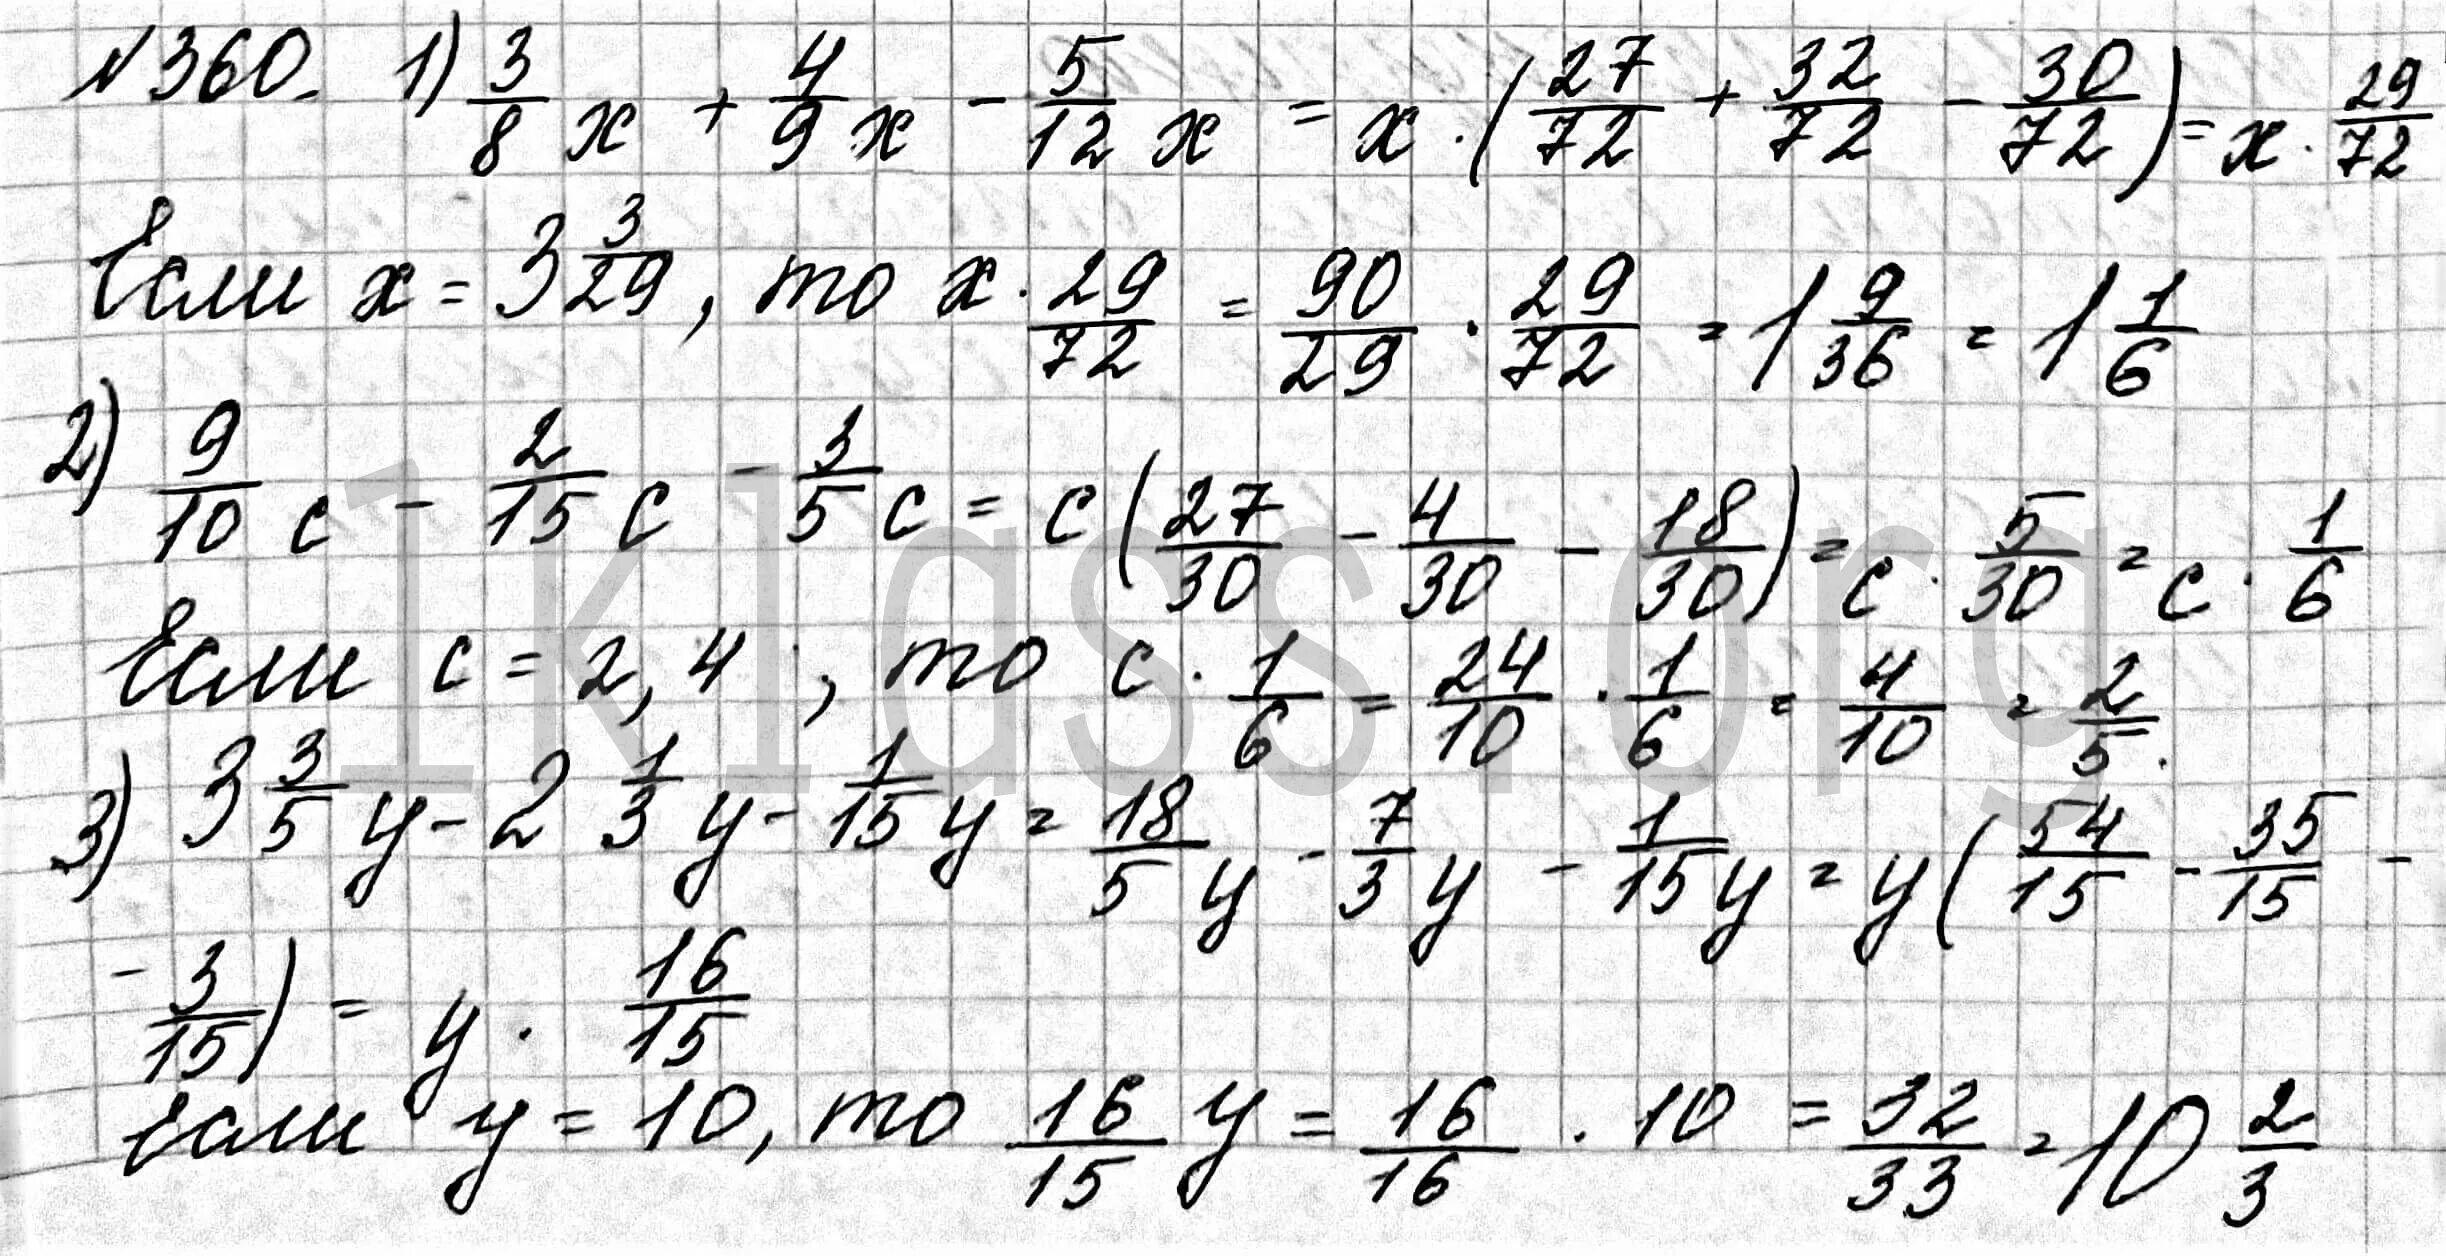 №360. 1) 3/8 x + 4/9 x - 5/12 x = x · (27/72 + 32/72 - 30/72) = x · 29/72
Если x = 3 3/29, то x · 29/72 = 90/29 · 29/72 = 1 9/36 = 1 1/6
2) 9/10 c - 2/15 c - 3/5 c = c (27/30 - 4/30 - 18/30) = c · 5/30 = c · 1/6
Если c = 2,4, то c · 1/6 = 24/10 · 1/6 = 4/10 = 2/5.
3) 3 3/5 y - 2 1/3 y - 1/15 y = 18/5 y - 7/3 y - 1/15 y = y (54/15 - 35/15 -
- 3/15) = y · 16/15
Если y = 10, то 16/15 y = 16/16 · 10 = 32/33 = 10 2/3
1klass.org